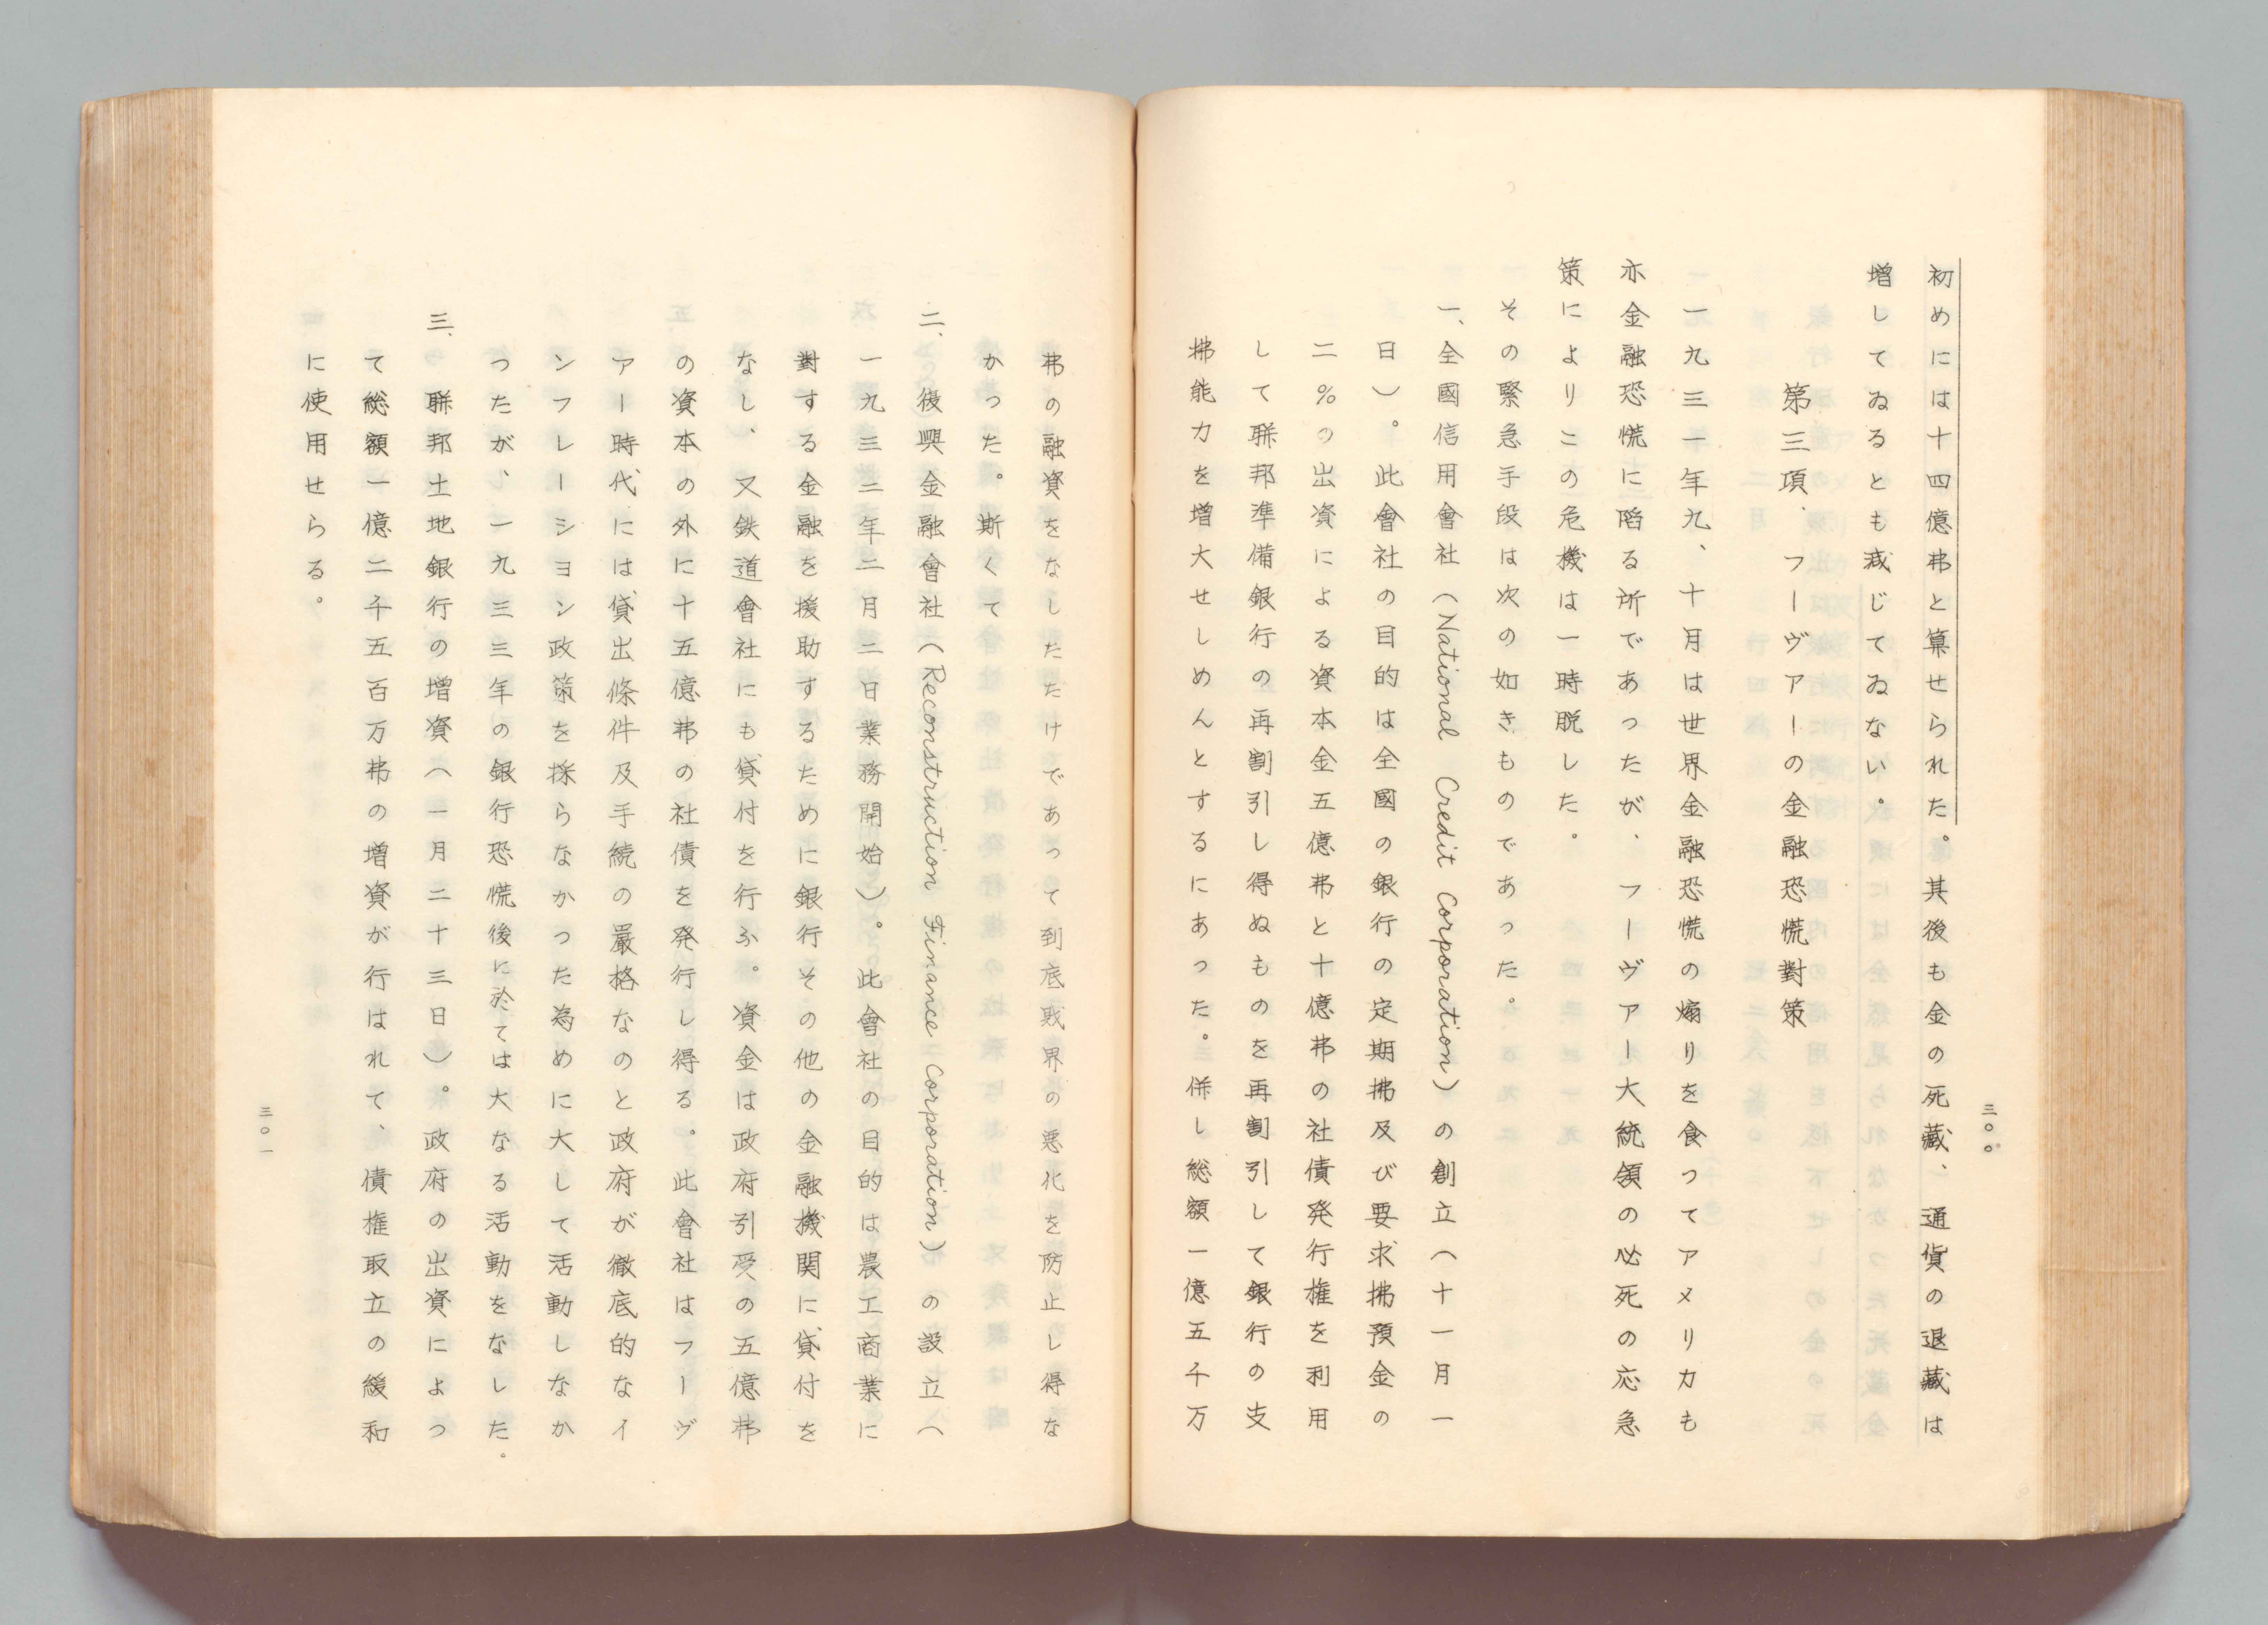 三〇〇
初めには十四億弗と算せられた。其後も金の死藏、通貨の退藏は
増してゐるとも減じてゐない。
第三項、フーヴアーの金融恐慌對策
一九三一年九、十月は世界金融恐慌の煽りを食つてアメリカも
亦金融恐慌に陷る所であつたが、フーヴアー大統領の必死の応急
策によりこの危機は一時脱した。
その緊急手段は次の如きものであつた。
一、全國信用會社(National Credit Corporation)の創立(十一月一
日)。此會社の目的は全國の銀行の定期拂及び要求拂預金の
二%の出資による資本金五億弗と十億弗の社債発行権を利用
して聯邦準備銀行の再割引し得ぬものを再割引して銀行の支
拂能力を増大せしめんとするにあつた。併し総額一億五千万
弗の融資をなしたたけであつて到底敗界の悪化を防止し得な
かつた。斯くて
二、復興金融會社(Reconstruction Finance Corporation)の設立(
一九三二年二月二日業務開始)。此會社の目的は農工商業に
對する金融を援助するために銀行その他の金融機関に貸付を
なし、又鉄道會社にも貸付を行ふ。資金は政府引受の五億弗
の資本の外に十五億弗の社債を発行し得る。此會社はフーヴ
アー時代には貸出條件及手続の嚴格なのと政府が徹底的なイ
ンフレーシヨン政策を採らなかつた為めに大して活動しなか
つたが、一九三三年の銀行恐慌後に於ては大なる活動をなした。
三、聯邦土地銀行の増資(一月二十三日)。政府の出資によつ
て総額一億二千五百万弗の増資が行はれて、債権取立の緩和
に使用せらる。
三〇一